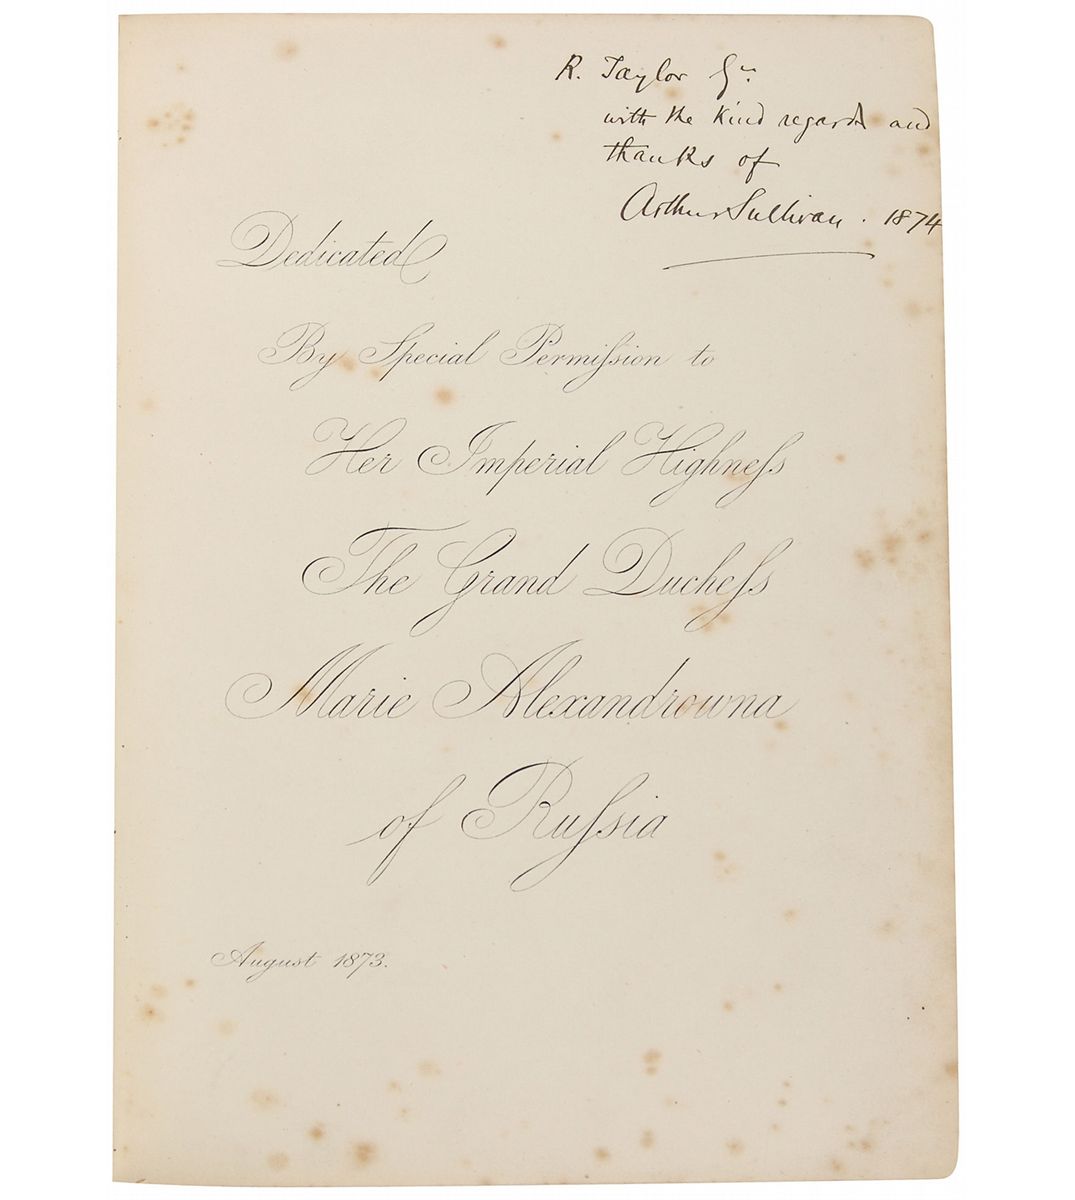 R. Taylor Jr.
with the kind regards and
thanks of
Arthur Sullivan. 1874
Dedicated
By Special Permiſsion to
Her Imperial Highneſs
The Grand Ducheſs
Marie Alexandrowna
of Ruſsia
August 1873.